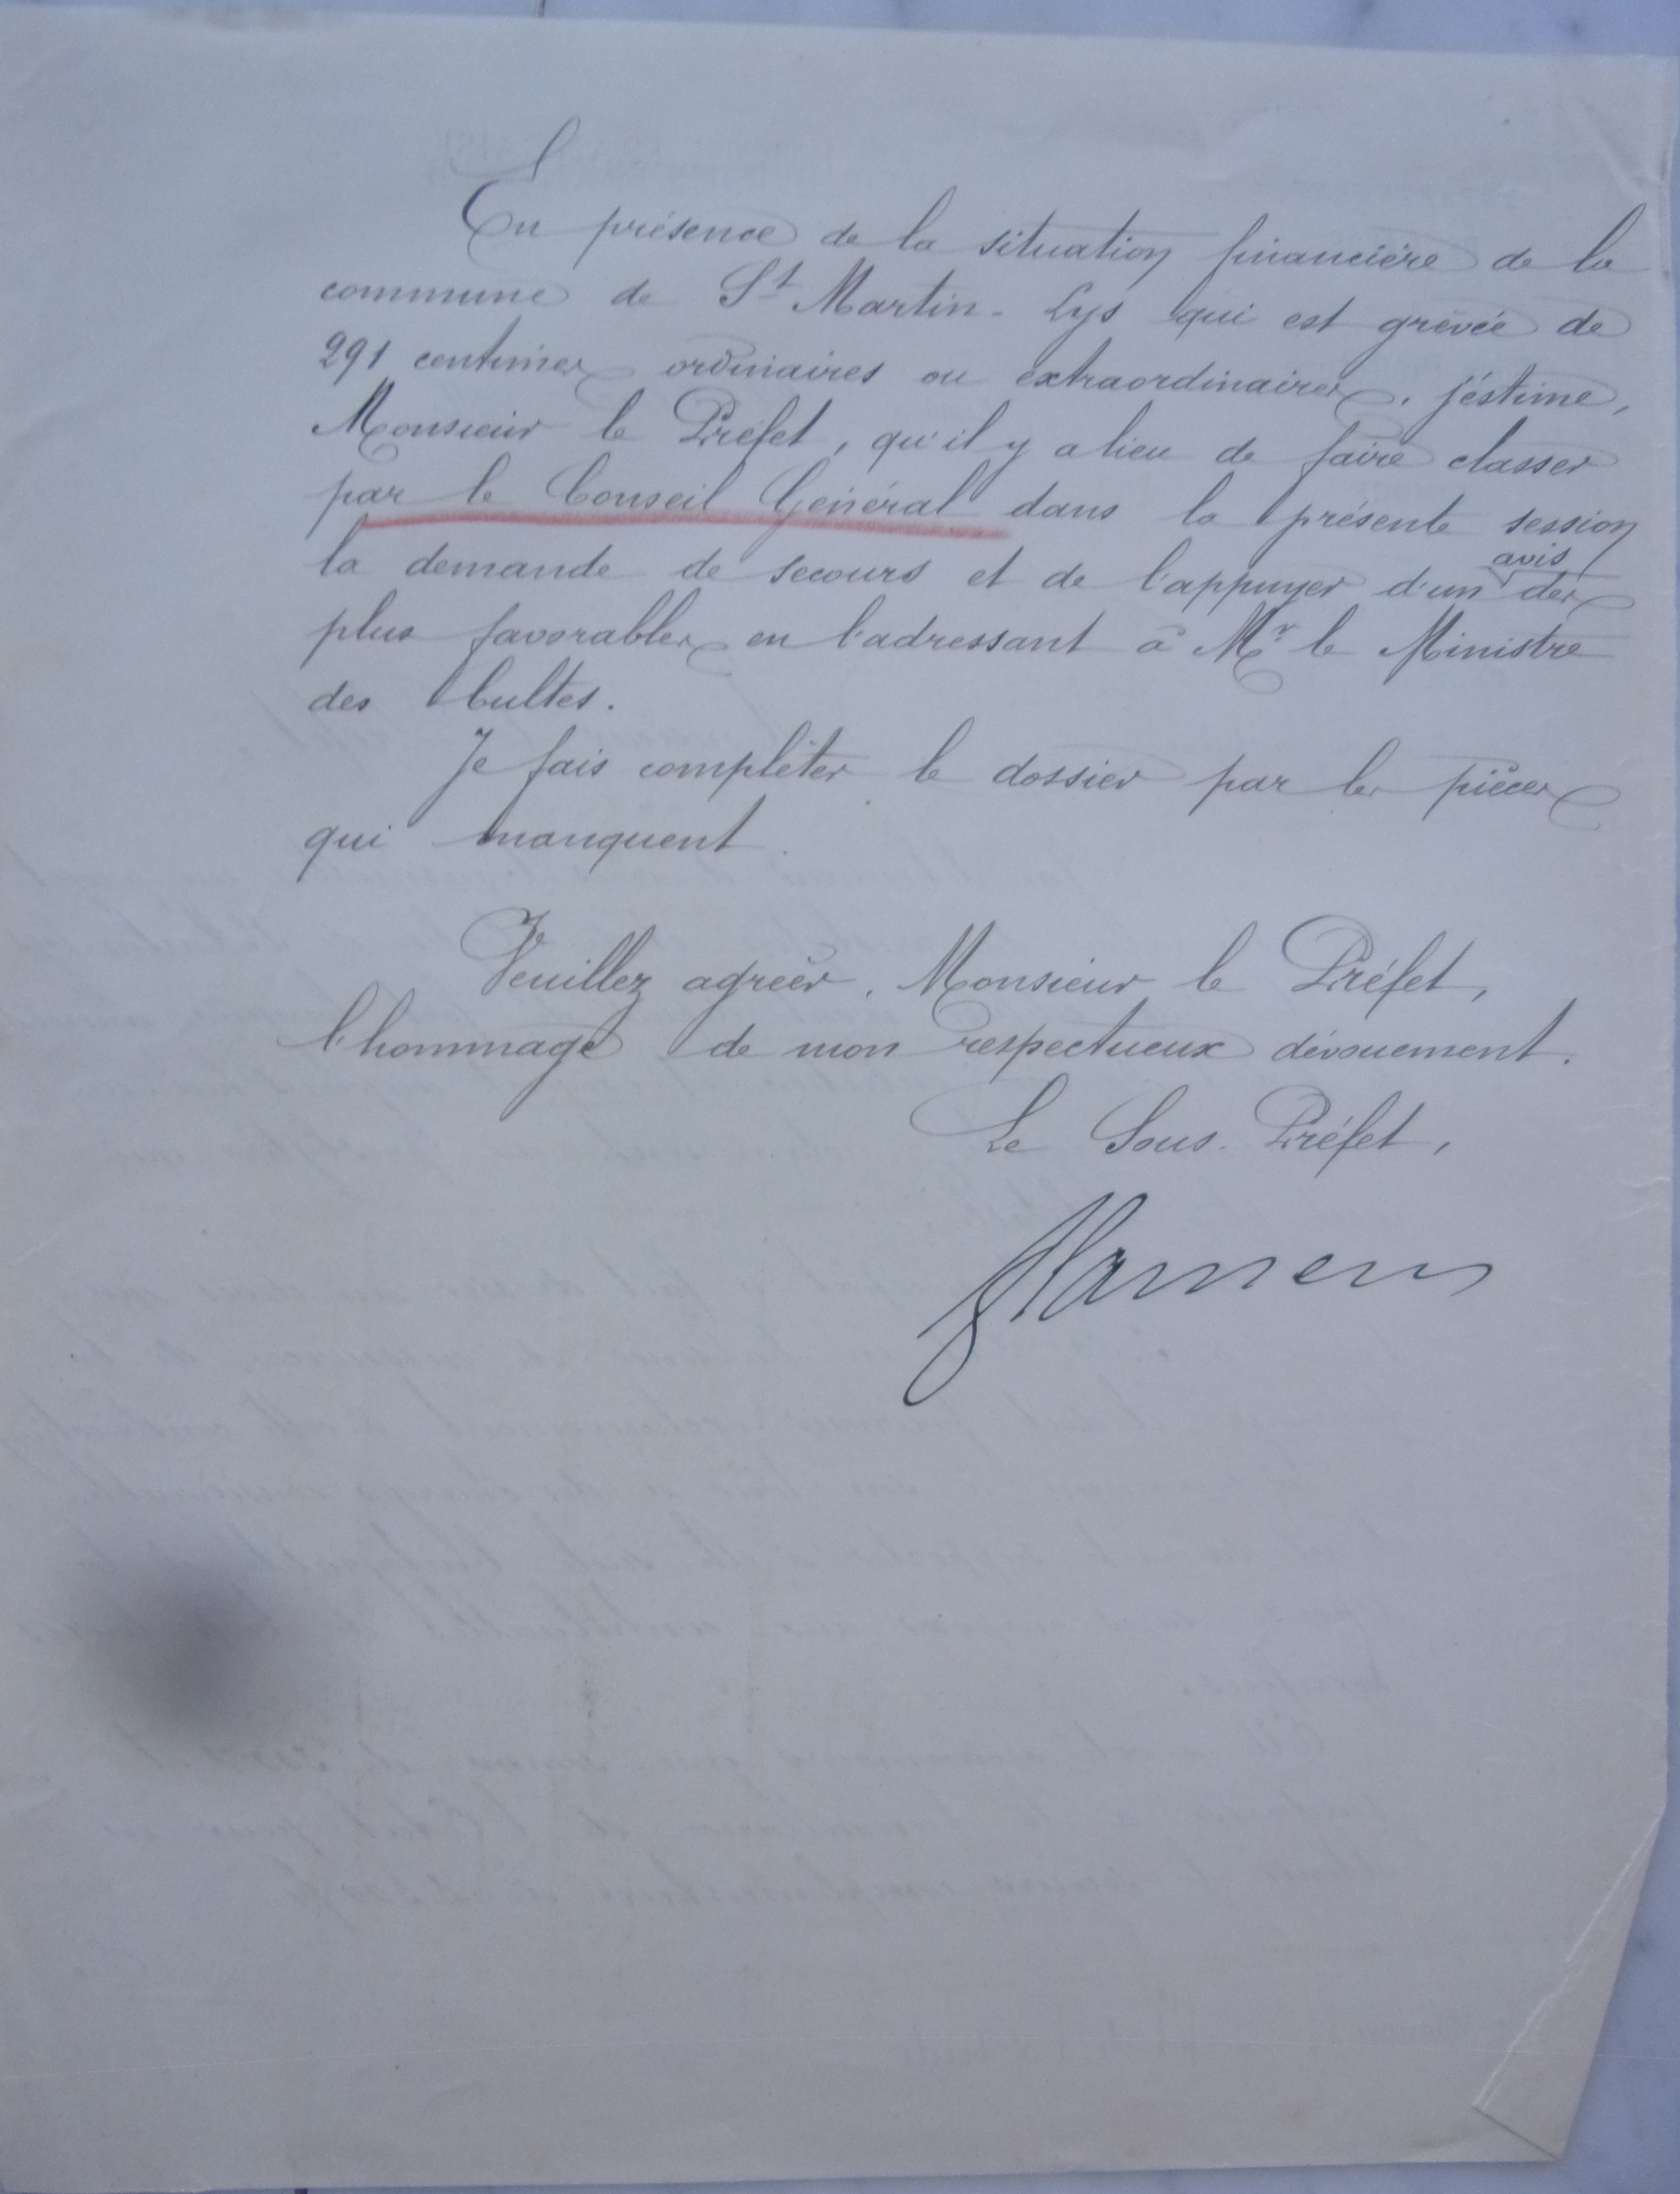 En présence de la situation financière de la
commune de St Martin-Lys qui est grevée de
291 centimes ordinaires ou extraordinaires, j'éstime,
Monsieur le Préfet, qu'il y a lieu de faire classer
par le Conseil Général dans la présente session
la demande de secours et de l'appuyer d'un avis des
plus favorables en l'adressant à Mr le Ministre
des Cultes.
Je fais compléter le dossier par les pièces
qui manquent.
Veuillez agréer, Monsieur le Préfet,
l'hommage de mon respectueux dévouement.
Le Sous-Préfet,